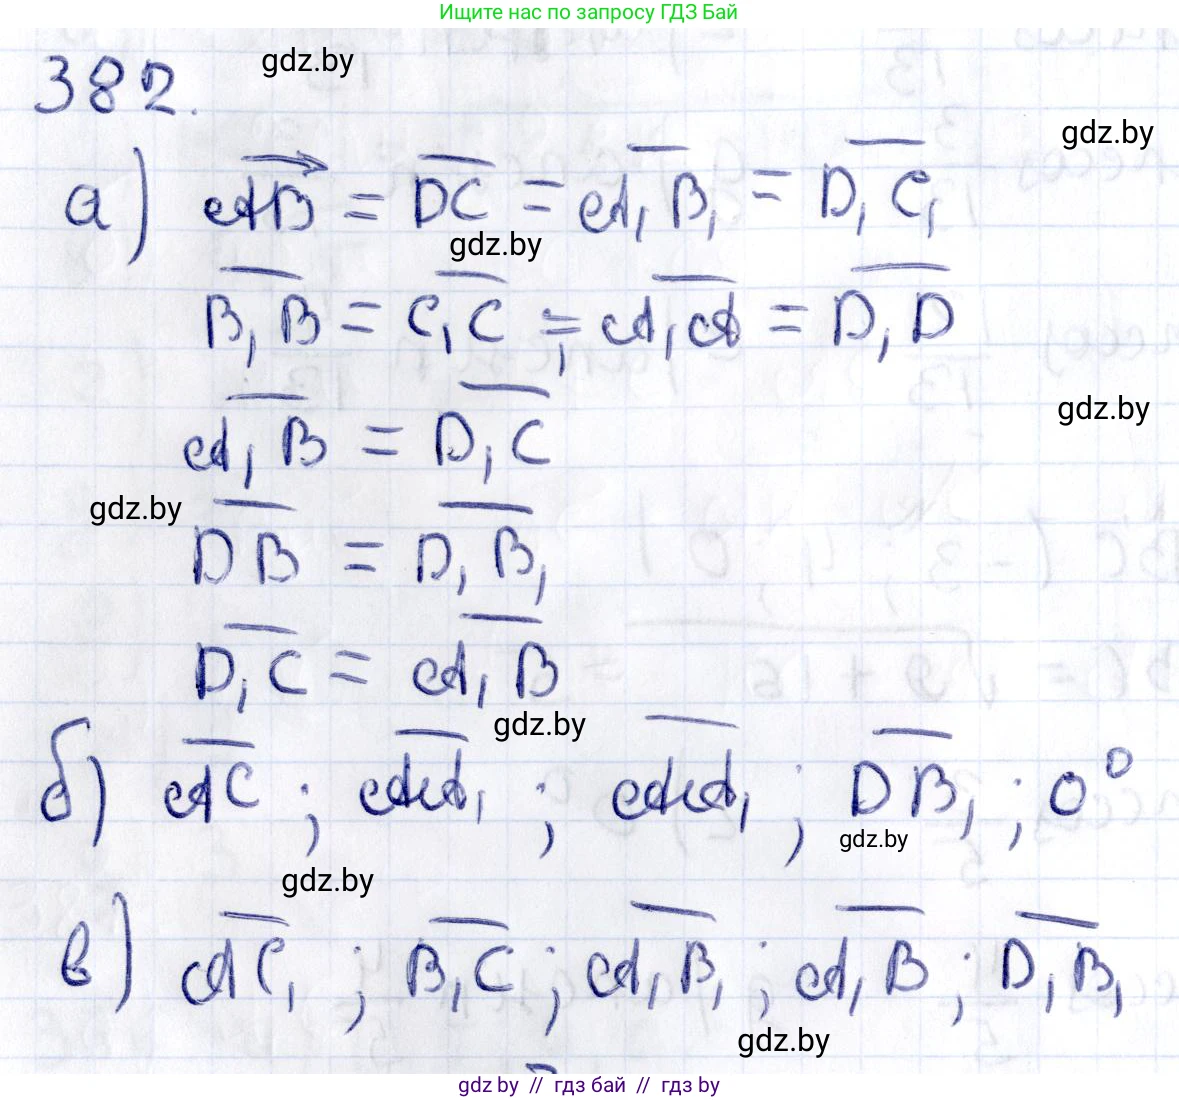 Ищите нас по запросу ГДЗ Бай
382.
gdz.by
gdz.by
а) AB = DC = A₁B₁ = D₁C₁
gdz.by
B₁B = C₁C = A₁A = D₁D
A₁B = D₁C
gdz.by
gdz.by
DB = D₁B₁
D₁C = A₁B
gdz.by
б) AC ; AA₁ ; AA₁ ; DB₁ ; 0⁰
gdz.by
gdz.by
в) AC₁ ; B₁C ; A₁B₁ ; A₁B ; D₁B₁
gdz.by
gdz.by // гдз бай // гдз by